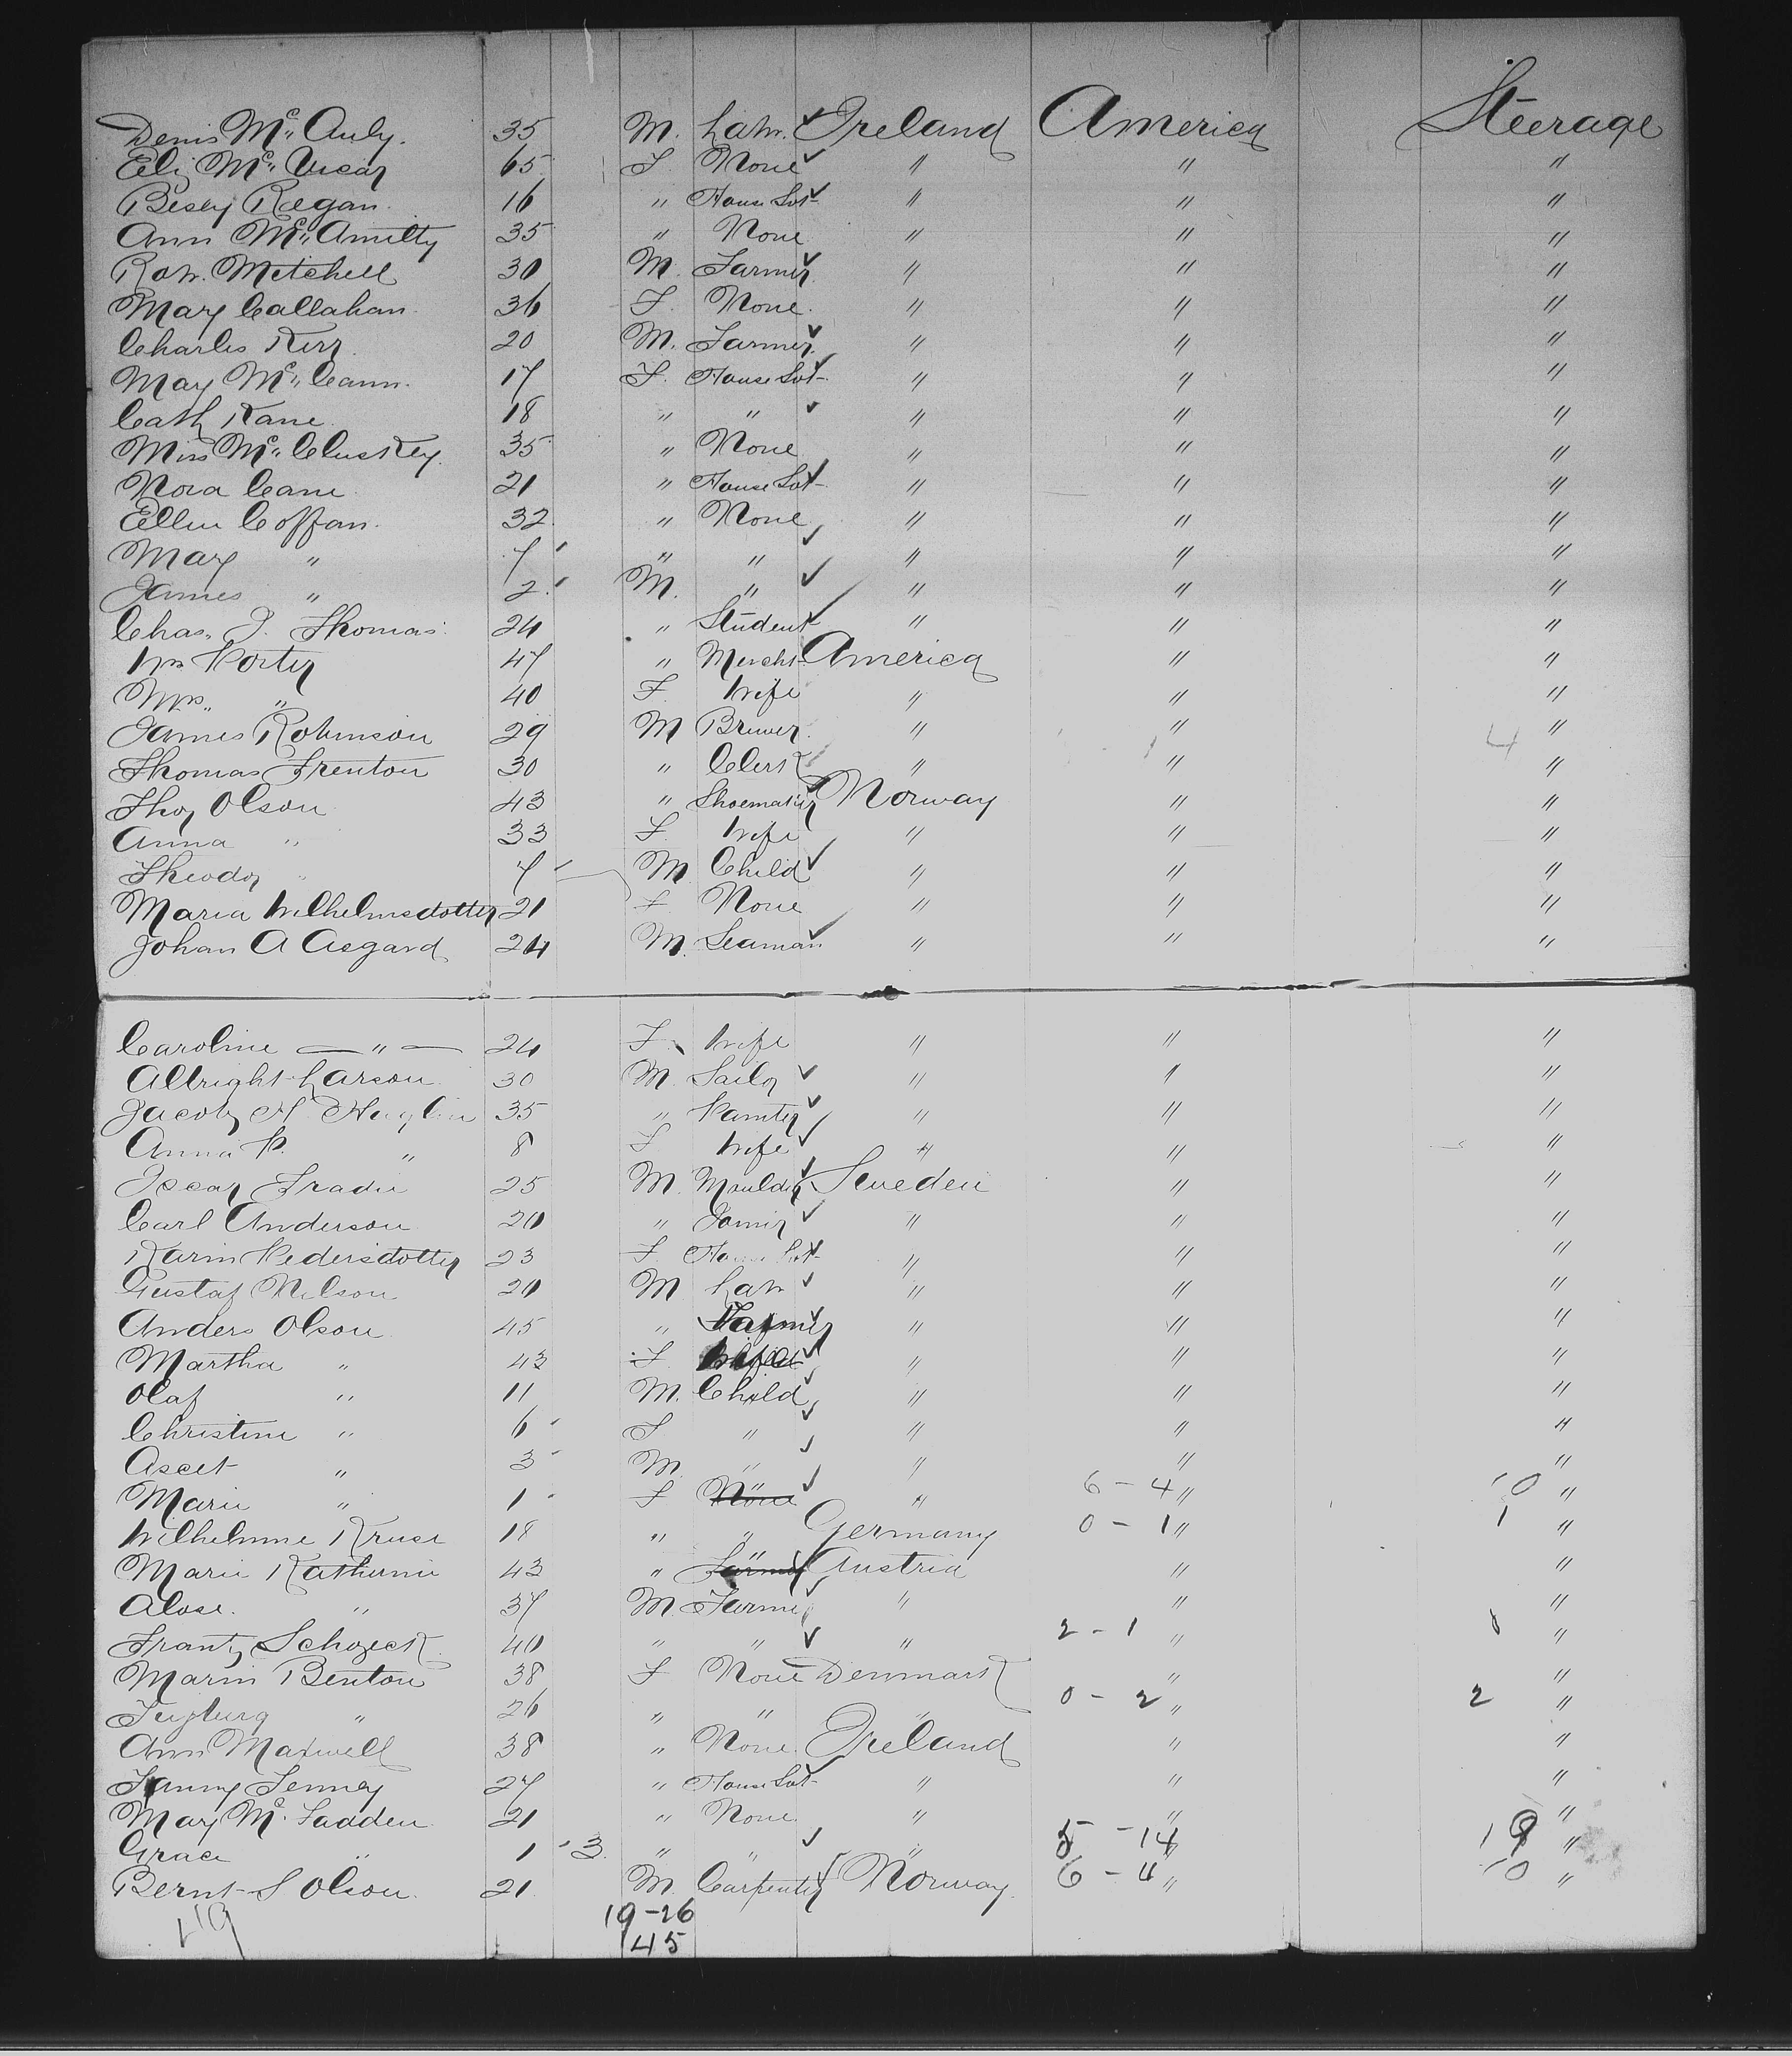 Denis Mc Auly. 35 M. Labr. Ireland America Steerage
Eliz Mc 65 F None " " "
Regan 16 " House Svt " " "
Ann Mc 35 " None " " "
Rob. Mitchell 30 M. Farmer " " "
Mary Callahan 36 F. None. " " "
Charles Kerr 20 M. Farmer " " "
May Mc Cann. 17 F. House Svt " " "
Cath Kane 18 " " " " "
Miss Mc Cluskey. 35 " None " " "
Nora Cane 21 " House Svt " " "
Ellen Coffan. 32 " None " " "
Mary " 7 " " " " "
James " 2 M. " " " "
Chas. J. Thomas 24 " Student " " "
Wm Porter 47 " Mercht America " "
Mrs. " 40 F Wife " " "
James Robinson 29 M Brewer " 1 " 4 "
Thomas Trenton 30 " Clerk " " "
Thor Olson 43 " Shoemaker Norway " "
Anna " 33 F. Wife " " "
Theodor " 7 M Child " " "
Maria Wilhelmsdotter 21 F None " " "
Johan A Asgard 24 M. Seaman " " "
Caroline — " — 24 F. Wife " " "
Albright Larson 30 M. Sailor " " "
Jacob H. 35 " Painter " " "
Anna P. " 8 F Wife " " "
Oscar 25 M. Moulder Sweden " "
Carl Anderson 20 " Joiner " " "
Karin Pedersdotter 23 F House Svt " " "
Gustaf Nelson 20 M Labr " " "
Anders Olson 45 " Farmer " " "
Martha " 43 F Wife " " "
Olaf " 11 M. Child " " "
Christine " 6 F " " " "
" 3 M " " " "
Marie " 1 F None " 6 - 4 " 10 "
Wilhelmine Kruse 18 " " Germany 0 - 1 " 1 "
Marie 43 " Austria " "
" 37 M Farmer " " "
Frantz 40 " " " 2 - 1 " "
Benton 38 F None Denmark " "
" 26 " " " 0 - 2 " 2 "
Ann Maxwell 38 " None Ireland " "
27 " House Svt " " "
Mary Mc Fadden 21 " None " " "
Grace " 1 3 " " " 5 - 14 " 19 "
Bernt S Olson 21 M. Carpenter Norway. 6 - 4 " 10 "
19-26
45